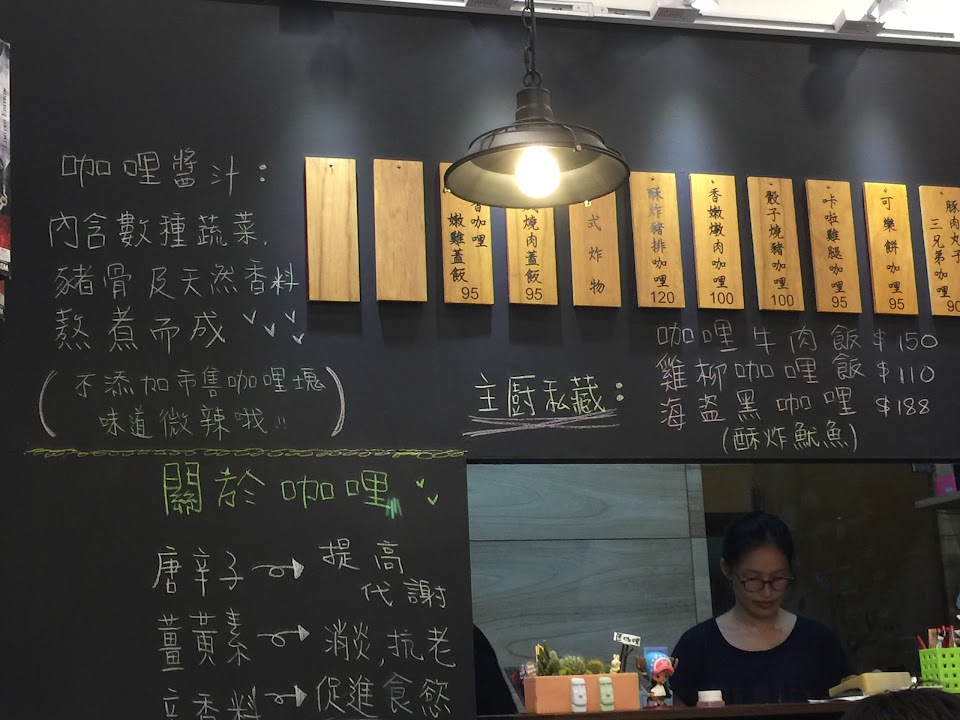 咖哩醬汁：
內含數種蔬菜，
豬骨及天然香料
熬煮而成
（不添加市售咖哩塊
味道微辣哦!!）
咖哩
嫩雞蓋飯
95
燒肉蓋飯
95
式炸物
酥炸豬排咖哩
120
香嫩燉肉咖哩
100
骰子燒豬咖哩
100
卡啦雞腿咖哩
95
可樂餅咖哩
95
豚肉丸子
三兄弟咖哩
90
主厨私藏：
咖哩牛肉飯 $150
雞柳咖哩飯 $110
海盜黑咖哩 $188
(酥炸魷魚)
關於咖哩
唐辛子
提高
代謝
薑黃素
消炎,抗老
辛香料
促進食慾